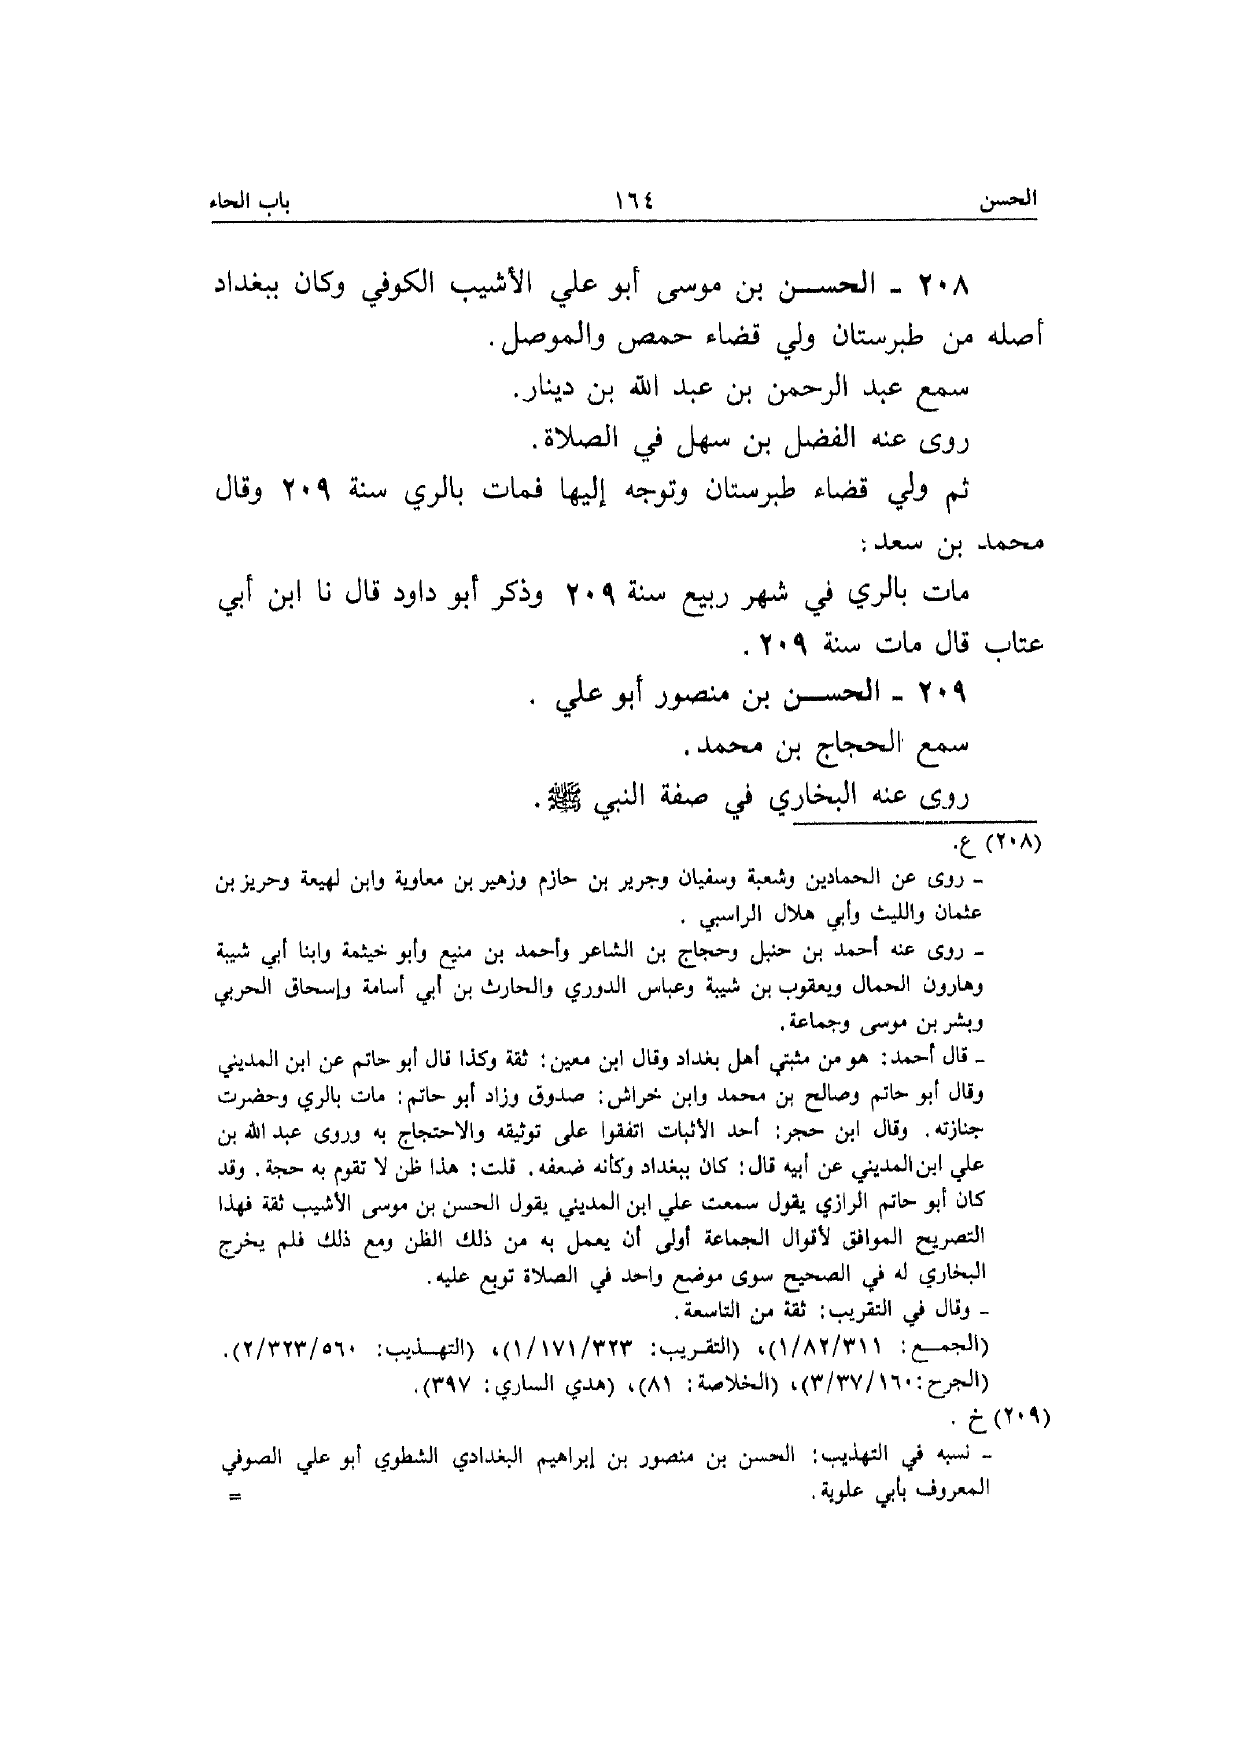 الحسن ١٦٤ باب الحاء
٢٠٨ - الحسن بن موسى أبو علي الأشيب الكوفي وكان ببغداد
أصله من طبرستان ولي قضاء حمص والموصل.
سمع عبد الرحمن بن عبد الله بن دينار.
روى عنه الفضل بن سهل في الصلاة.
ثم ولي قضاء طبرستان وتوجه إليها فمات بالري سنة ٢٠٩ وقال
محمد بن سعد:
مات بالري في شهر ربيع سنة ٢٠٩ وذكر أبو داود قال نا ابن أبي
عتاب قال مات سنة ٢٠٩.
٢٠٩ - الحسن بن منصور أبو علي .
سمع الحجاج بن محمد.
روى عنه البخاري في صفة النبي ﷺ.
(٢٠٨) ع.
- روى عن الحمادين وشعبة وسفيان وجرير بن حازم وزهير بن معاوية وابن لهيعة وحريز بن
عثمان والليث وأبي هلال الراسبي .
- روى عنه أحمد بن حنبل وحجاج بن الشاعر وأحمد بن منيع وأبو خيثمة وابنا أبي شيبة
وهارون الحمال ويعقوب بن شيبة وعباس الدوري والحارث بن أبي أسامة وإسحاق الحربي
وبشر بن موسى وجماعة.
- قال أحمد: هو من مثبتي أهل بغداد وقال ابن معين: ثقة وكذا قال أبو حاتم عن ابن المديني
وقال أبو حاتم وصالح بن محمد وابن خراش: صدوق وزاد أبو حاتم: مات بالري وحضرت
جنازته. وقال ابن حجر: أحد الأثبات اتفقوا على توثيقه والاحتجاج به وروى عبد الله بن
علي ابن المديني عن أبيه قال: كان ببغداد وكأنه ضعفه. قلت: هذا ظن لا تقوم به حجة. وقد
كان أبو حاتم الرازي يقول سمعت علي ابن المديني يقول الحسن بن موسى الأشيب ثقة فهذا
التصريح الموافق لأقوال الجماعة أولى أن يعمل به من ذلك الظن ومع ذلك فلم يخرج
البخاري له في الصحيح سوى موضع واحد في الصلاة توبع عليه.
- وقال في التقريب: ثقة من التاسعة.
(الجمع: ١/٨٢/٣١١)، (التقريب: ١/١٧١/٣٢٣)، (التهذيب: ٢/٣٢٣/٥٦٠).
(الجرح: ٣/٣٧/١٦٠)، (الخلاصة: ٨١)، (هدي الساري: ٣٩٧).
(٢٠٩) خ .
- نسبه في التهذيب: الحسن بن منصور بن إبراهيم البغدادي الشطوي أبو علي الصوفي
المعروف بأبي علوية. =